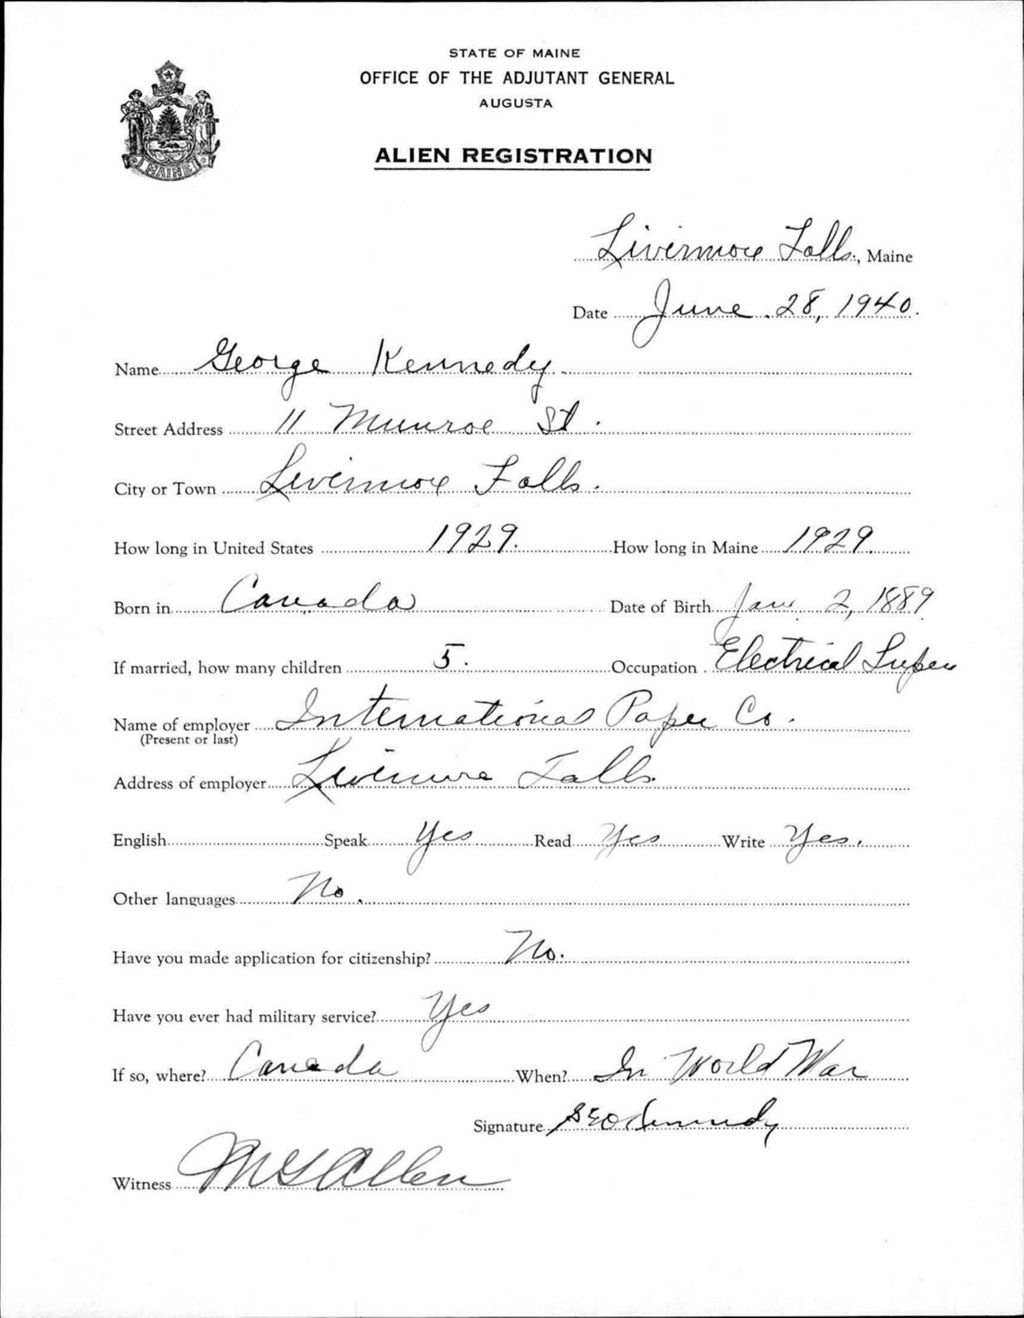 STATE OF MAINE
OFFICE OF THE ADJUTANT GENERAL
AUGUSTA
ALIEN REGISTRATION
MAINE
Livermore Falls, Maine
Date June 28, 1940.
Name George Kennedy
Street Address 11 Munroe St.
City or Town Livermore Falls.
How long in United States 1929. How long in Maine 1929.
Born in Canada Date of Birth Jan 2, 1889
If married, how many children 5. Occupation Electrical Super
Name of employer International Paper Co.
(Present or last)
Address of employer Livermore Falls.
English Speak Yes Read Yes Write Yes.
Other languages No.
Have you made application for citizenship? No.
Have you ever had military service? Yes
If so, where? Canada When? In World War
Signature Geo Kennedy
Witness Allen